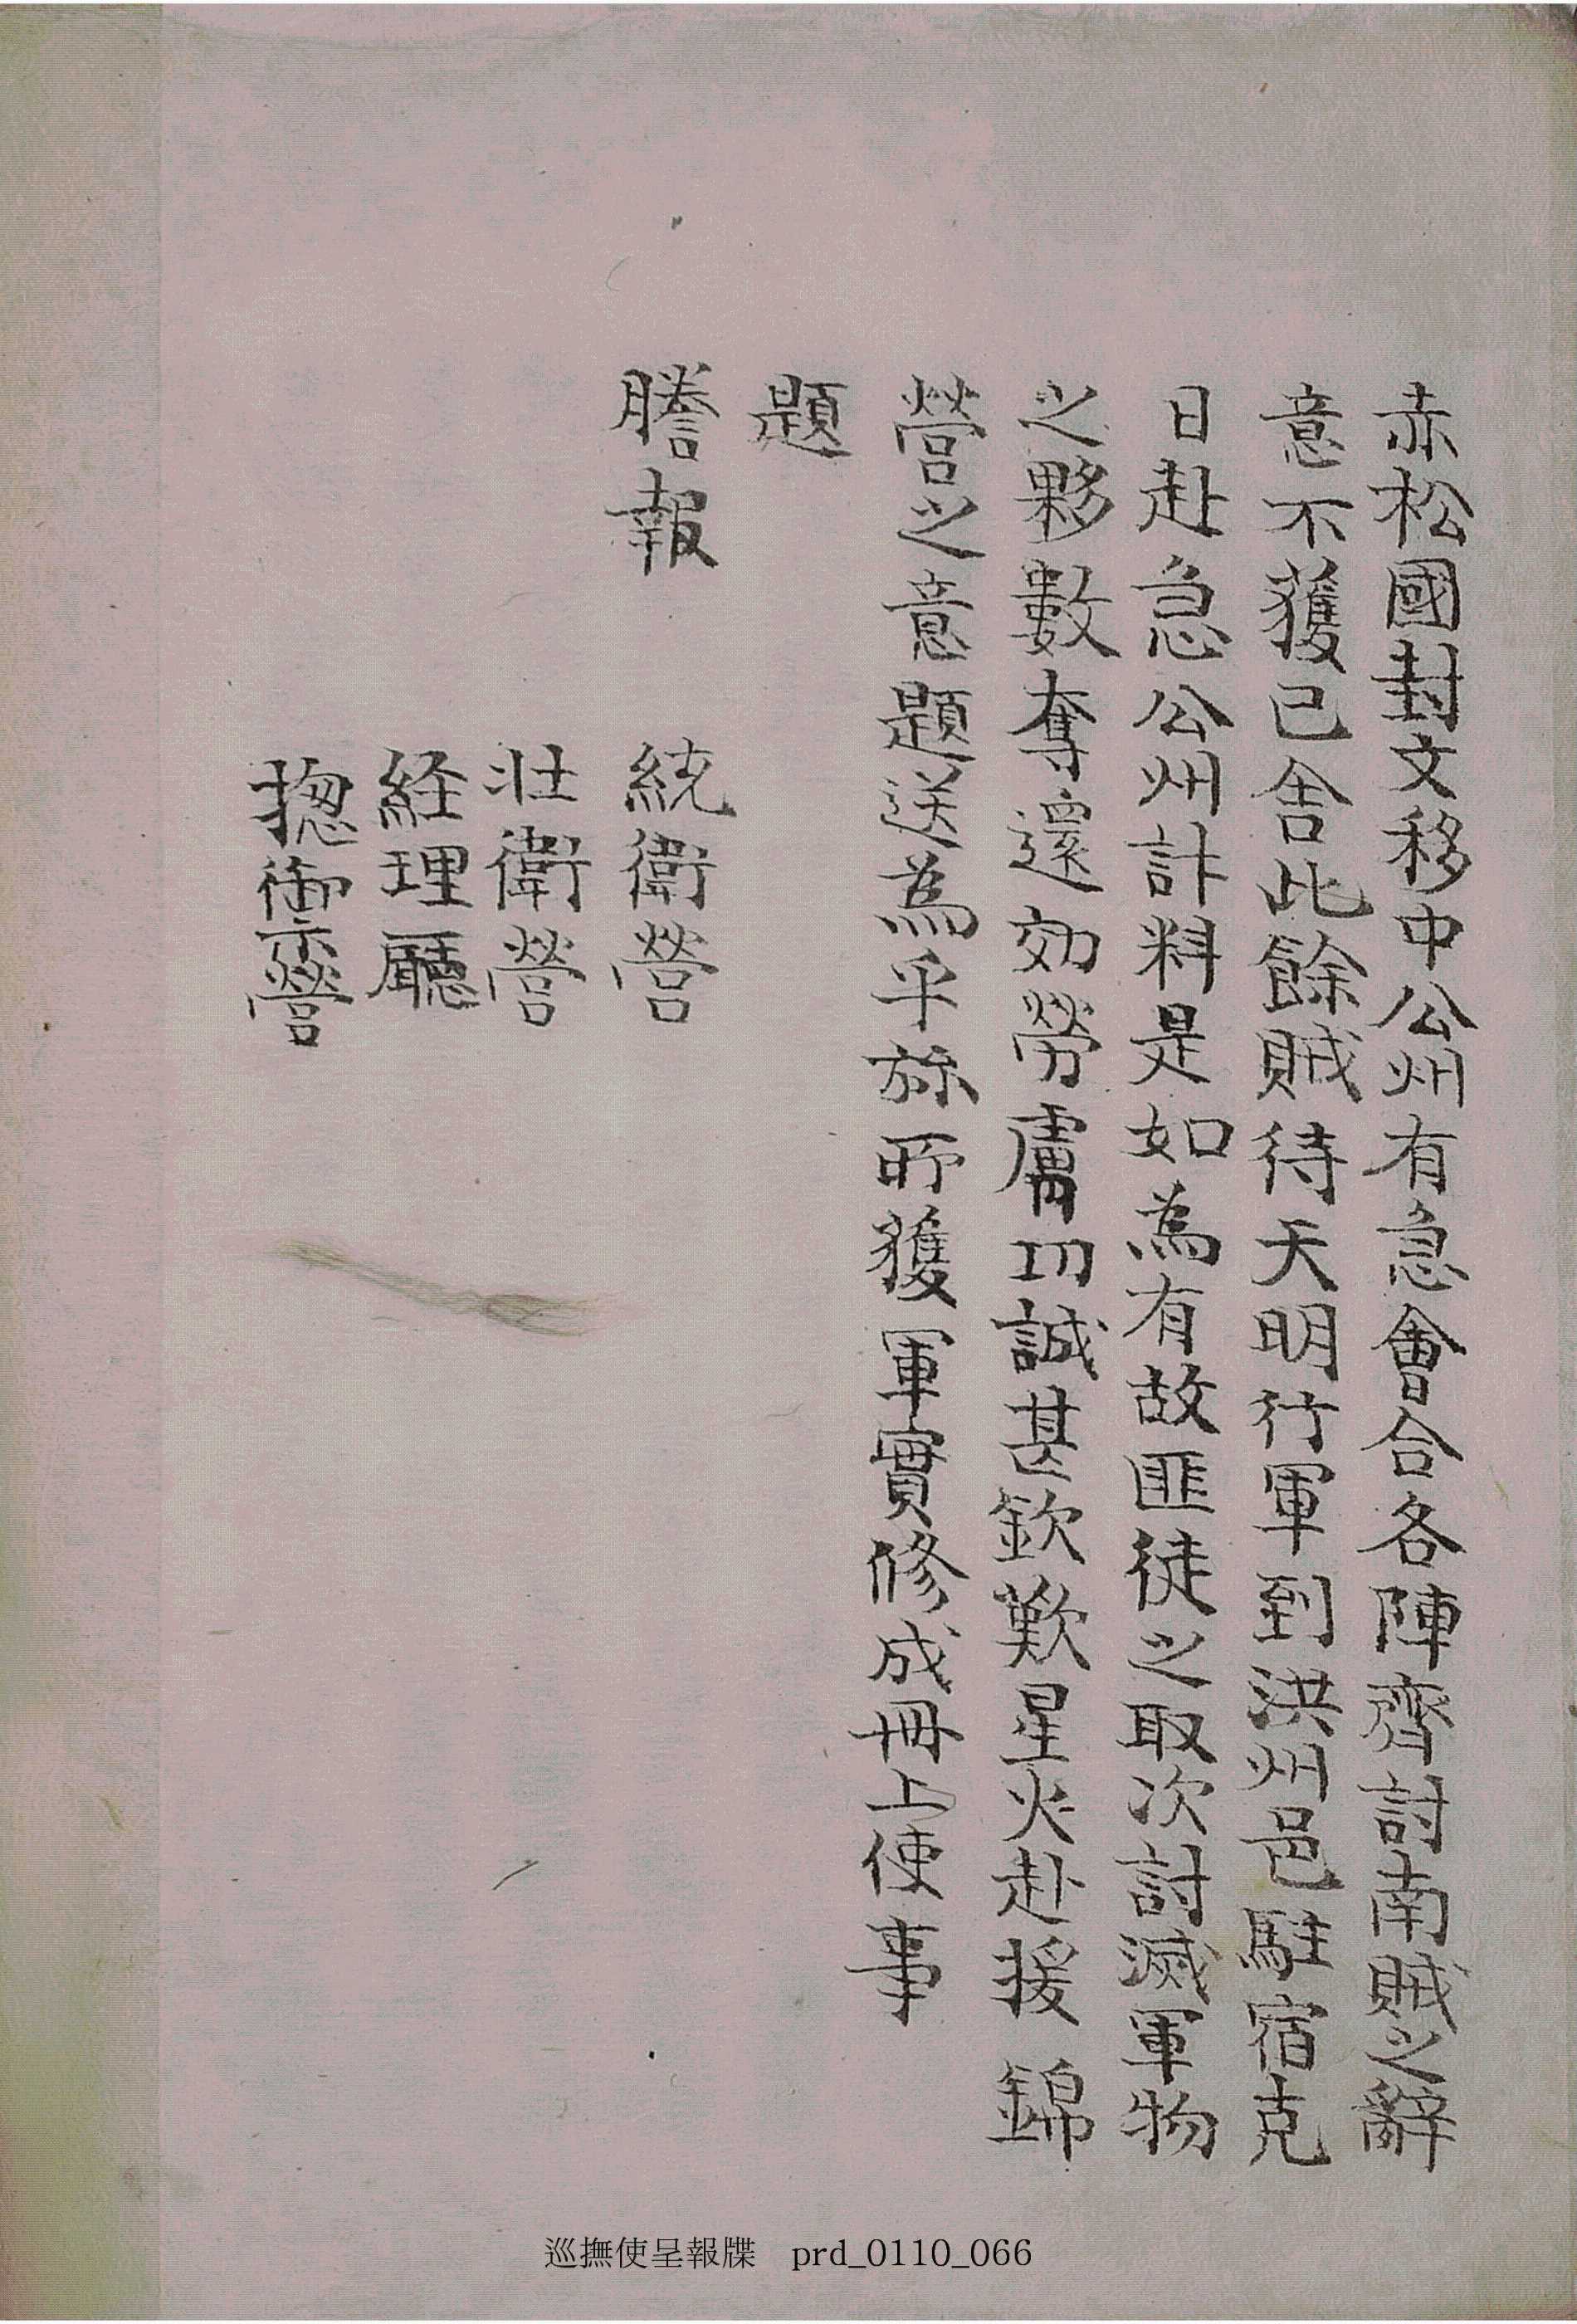 赤松國封文移中公州有急會合各陣齊討南賊之辭
意不獲已舍此餘賊待天明行軍到洪州邑駐宿克
日赴急公州計料是如為有故匪徒之取次討滅軍物
之夥數奪還効勞膚功誠甚欽歎星火赴援 錦
營之意題送為乎旀所獲軍實修成冊上使事
題
謄報 統衛營
壯衛營
経理廳
摠禦營
巡撫使呈報牒 prd_0110_066